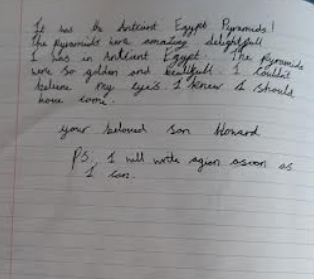 It was the Antcient Egypt Pyramids!
The pyramids were amazing delightfull
I was in Antcient Egypt. The pyramids
were so golden and beatifull. I couldn't
believe my eyes. I knew I should
have come.
your beloved son Howard
PS: I will write agion asoon as
I can.